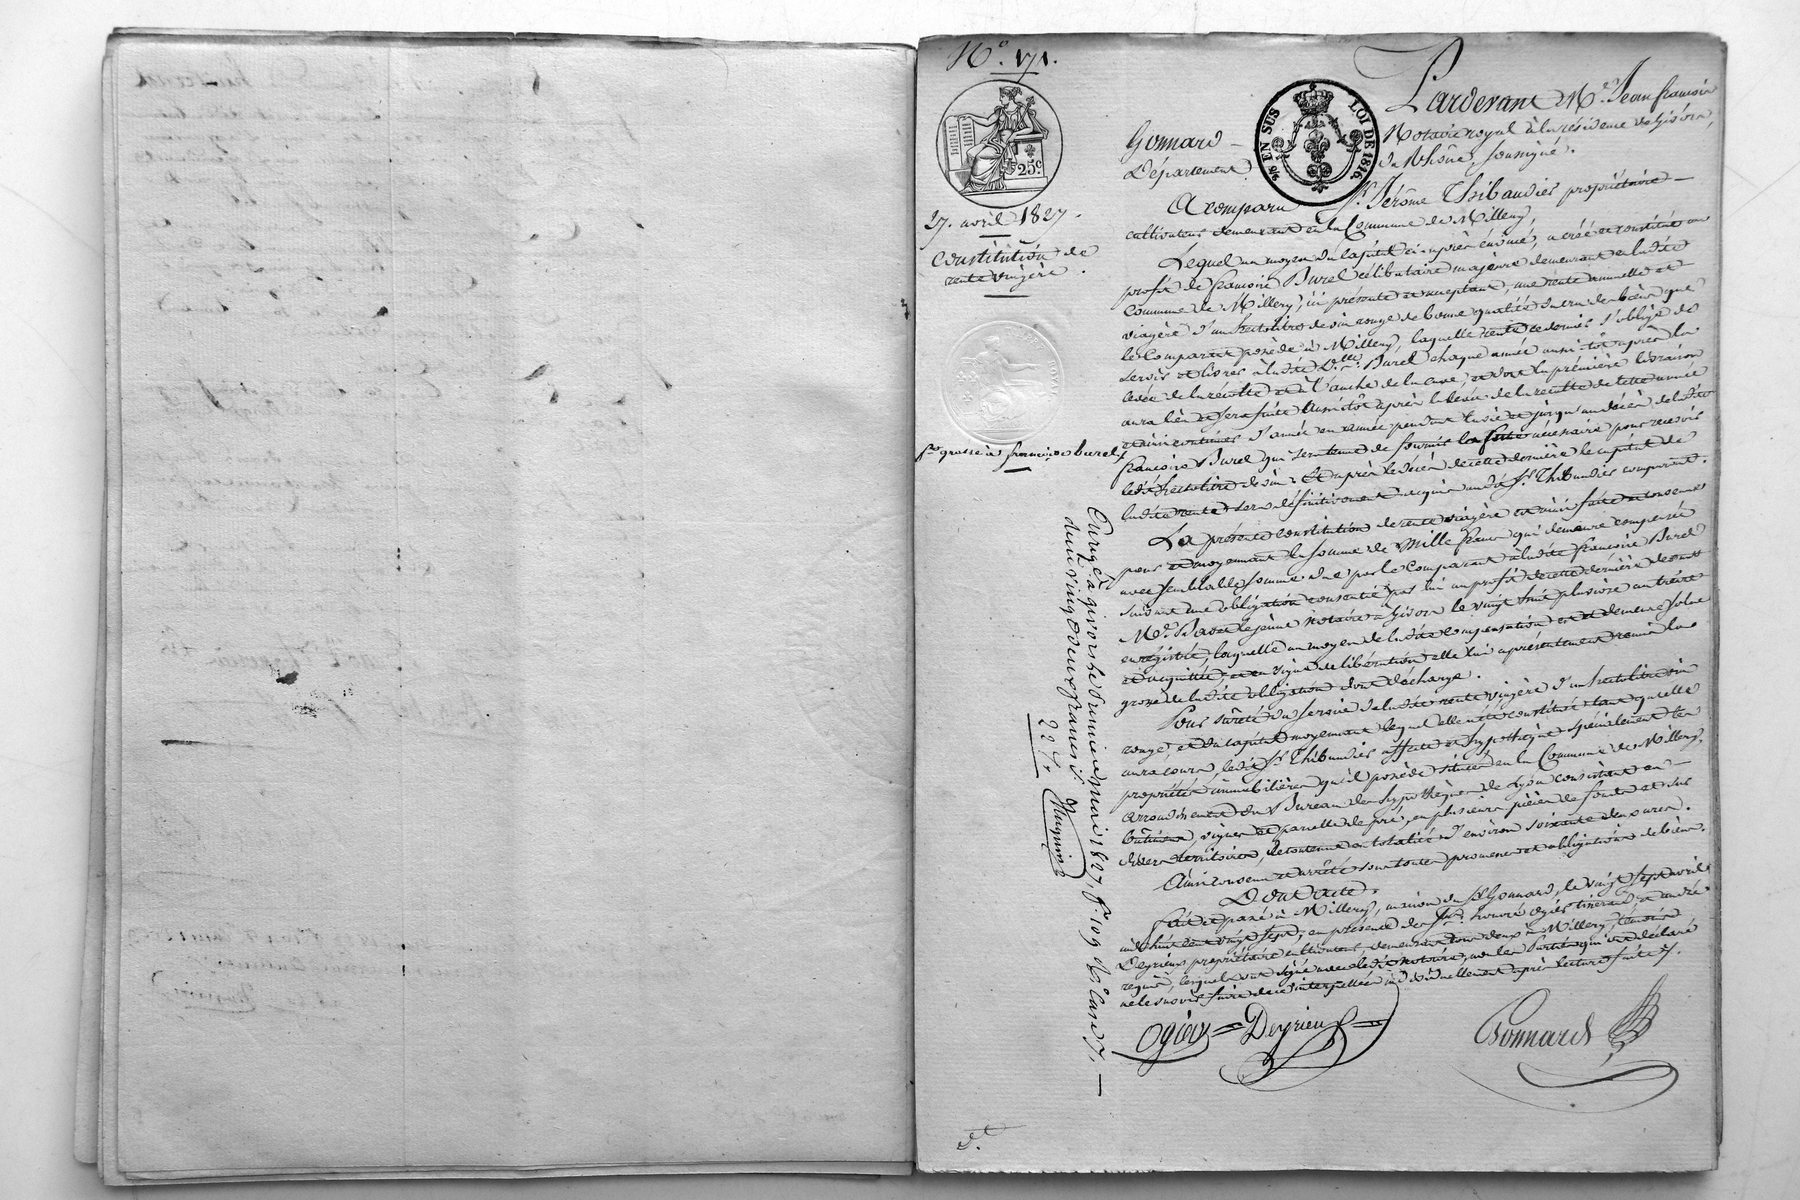 N.° 171.
25.c
27. avril 1827.
Constitution de
rente viagère.
fte grosse à françoise burel
EN SUS
LOI DE 1816.
Pardevant Me. Jean françois
Gonnard Notaire royal à la résidence de Givors,
Département du Rhône, soussigné.
A comparu Sr. Jérôme Thibaudier propriétaire
cultivateur demeurant en la Commune de Millery,
Lequel au moyen du capital ci-après énoncé, a créé et constitué au
profit de françoise Burel célibataire majeure demeurant en ladite
Commune de Millery, ici présente et acceptant, une rente annuelle et
viagère d'un hectolitre de vin rouge de bonne qualité du cru des biens que
le Comparant possède à Millery, laquelle rente ce dernier s'oblige de
servir et livrer à ladite Dlle. Burel chaque année aussi-tôt après la
levée de la récolte et à l'anche de la cuve, et dont la première livraison
aura lieu et sera faite aussitôt après la levée de la récolte de cette année
et ainsi continuer d'année en année pendant la vie et jusqu'au décès de ladite
françoise Burel qui sera tenue de fournir la futaille nécessaire pour recevoir
ledit hectolitre de vin; Et après le décès de cette dernière le capital de
ladite rente sera définitivement acquis audit Sr. Thibaudier comparant.
La présente constitution de rente viagère est ainsi faite et consentie
pour et moyennant la somme de Mille francs qui demeure compensée
avec semblable somme due par le Comparant à ladite françoise Burel
suivant une obligation consentie par lui au profit de cette dernière devant
Me. Bavet le jeune notaire à Givors le vingt huit pluviose an treize
enregistrée, laquelle au moyen de ladite compensation est et demeure soldée
et acquittée, et en signe de libération elle lui a présentement remis la
grosse de ladite obligation dont décharge.
Pour sûreté du service de ladite rente viagère d'un hectolitre vin
rouge, et du capital moyennant lequel elle a été constituée tant qu'elle
aura cours, ledit Sr. Thibaudier affecte et hypothèque spécialement les
propriétés immobilières qu'il possède situées en la Commune de Millery,
arrondissement du Bureau des hypothèques de Lyon consistant en
bâtimens, vignes et parcelle de pré, en plusieurs pièces de fonds et sur
divers territoires, de contenue en totalité d'environ soixante deux ares.
Ainsi convenu et arrêté sous toutes promesses et obligations de biens.
Dont acte.
fait et passé à Millery, maison du Sr. Gonnard, le vingt sept avril
mil huit cent vingt sept, en présence des Srs. honoré Ogier tisserand et andré
Deyrieux propriétaire cultivateur, demeurant tous deux à Millery, témoins
requis, lesquels ont signé avec ledit notaire, non les Parties qui ont déclaré
ne le savoir faire de ce interpellées individuellement après lecture faite ./.
Ogier = Deyrieux =
Gonnard
Enregé. à givors le premier mai 1827, f° 109
deux vingt deux francs
22 fr